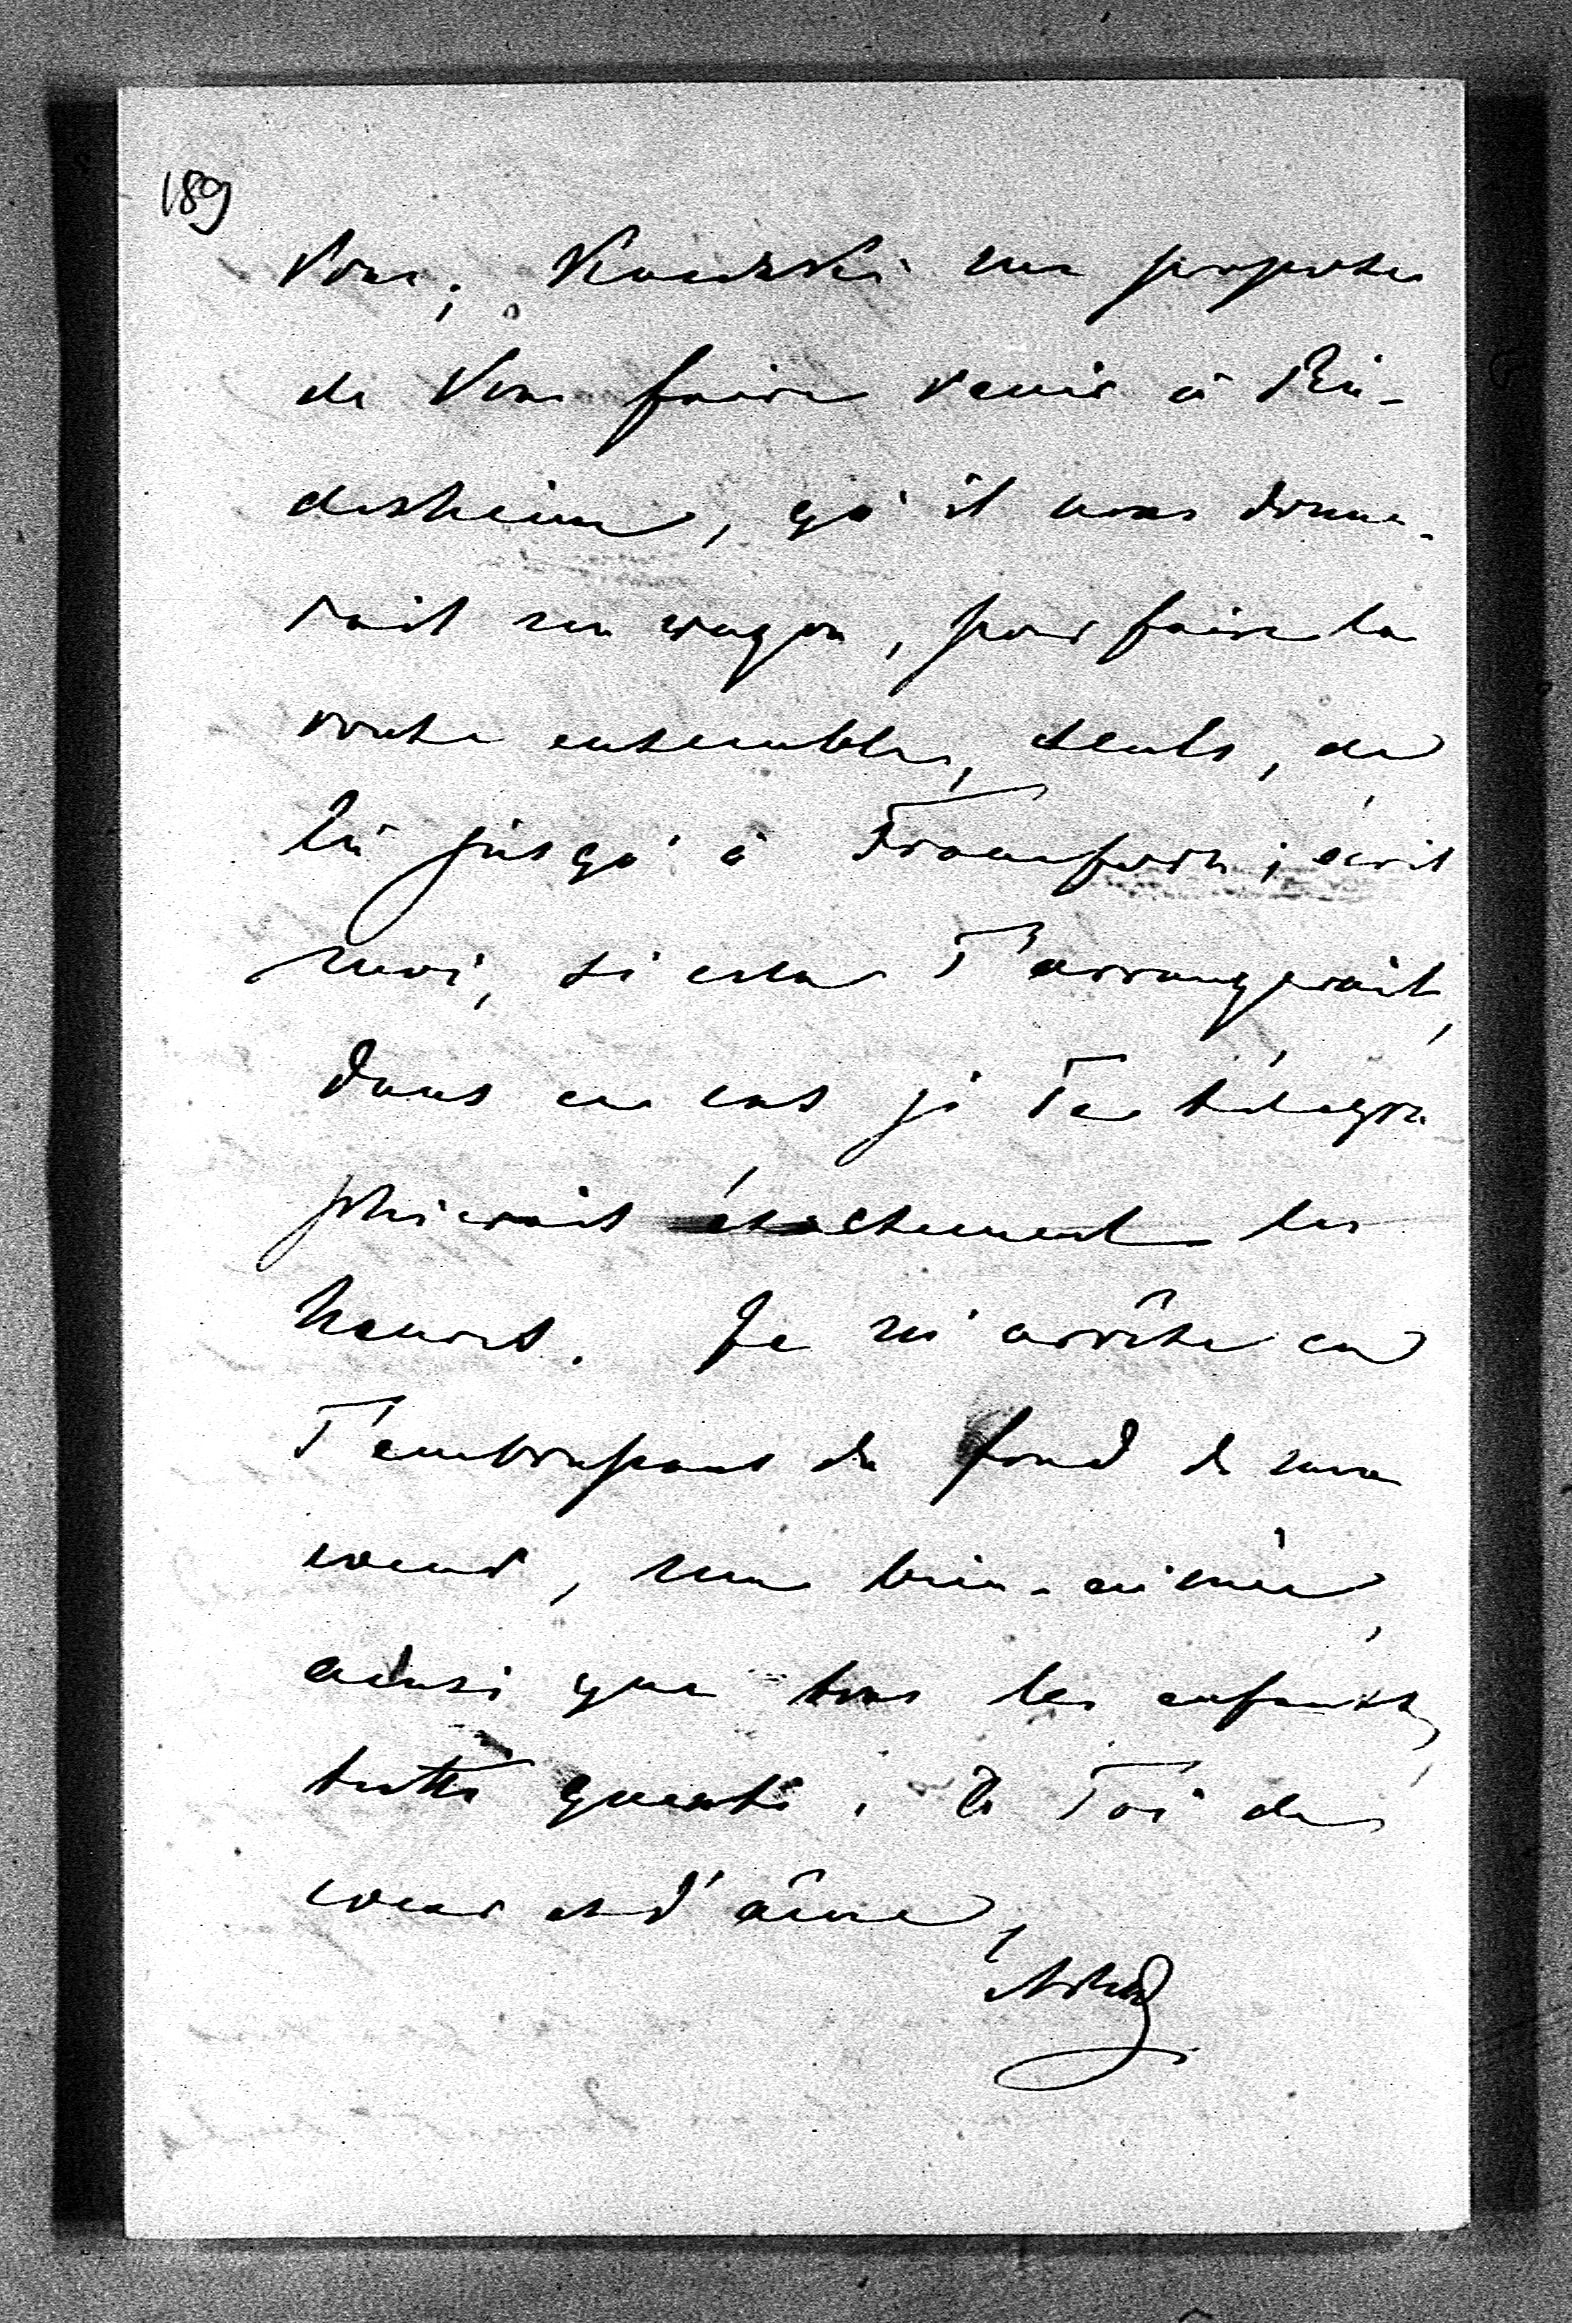 189
Vous; me propose
de Vous faire venir à Rü-
desheim, qu'il nous donne-
rait un wagon, pour faire la
route ensemble, seuls, de
là jusqu'à Francfort; écrit
moi, si cela T'arrangerait,
dans ce cas je Te télégra
phierait éxactement les
heures. Je m'arrête en
T'embrassant du fond de mon
coeur, ma bien-aimée,
ainsi que tous les enfants,
tutti quanti. à Toi de
coeur et d'âme,